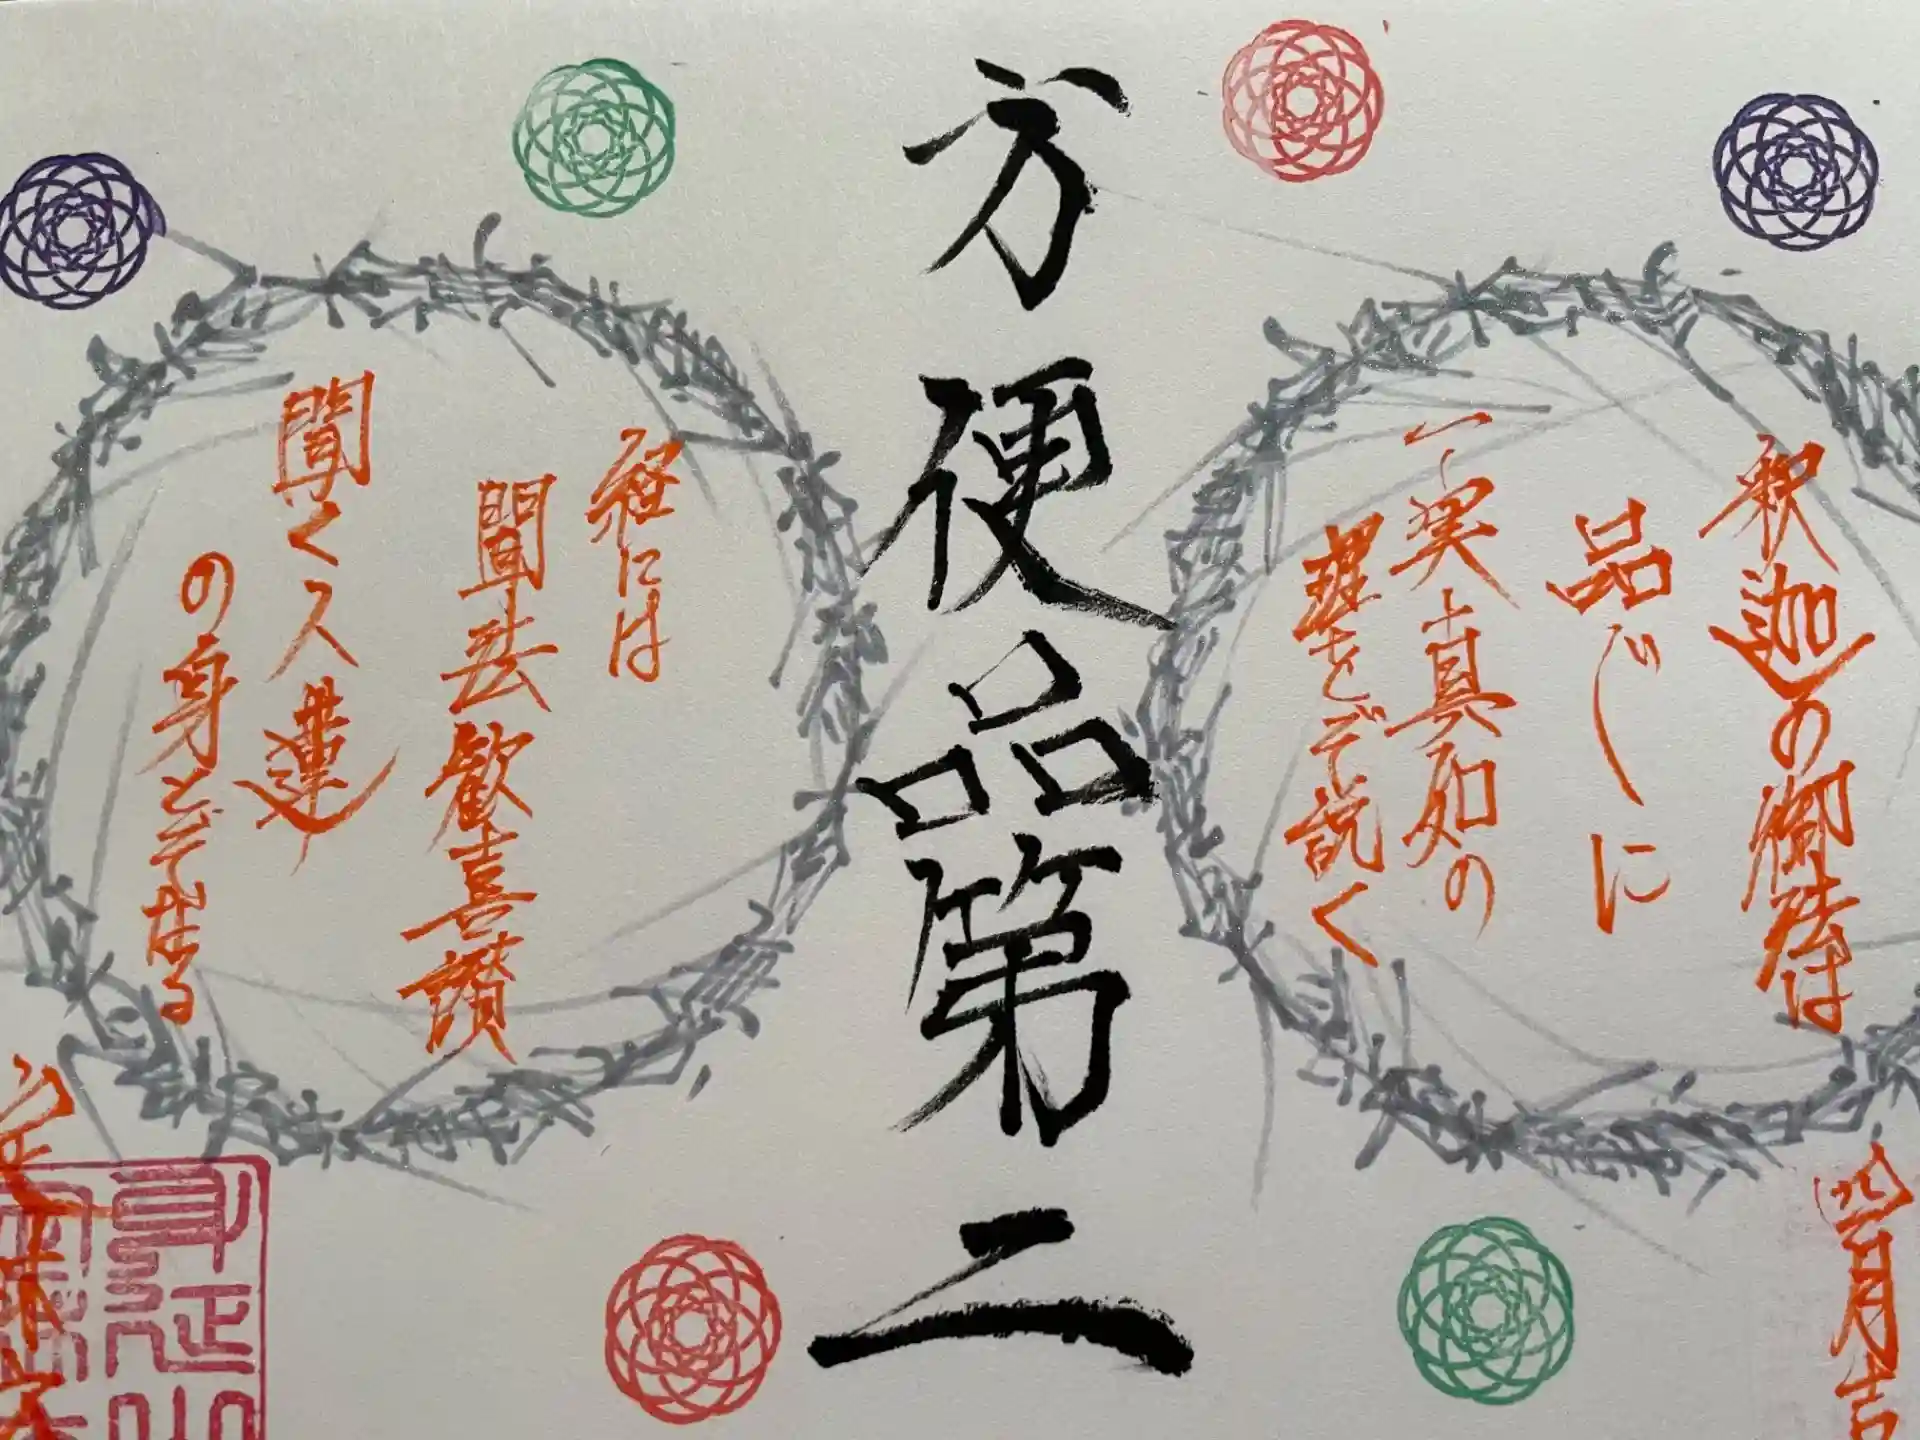 釈迦の御法は
品〴〵に
一実真如の
理をぞ説く
方便品第二
経には
聞法歓喜讃
聞く人蓮
の身とぞなる